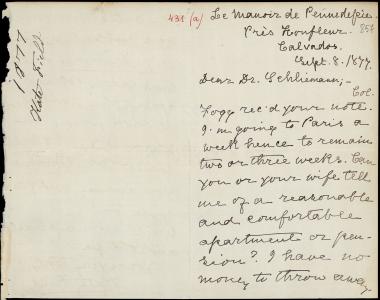 431 (a)
Le Manoir de Pennedepie.
Près Honfleur.
Calvados.
Sept. 8. 1877.
Dear Dr. Schliemann;-
Col.
Fogg rec'd your note.
I'm going to Paris a
week hence to remain
two or three weeks. Can
you or your wife tell
me of a reasonable
and comfortable
apartment or pen-
sion? I have no
money to throw away
1877
Kate Field